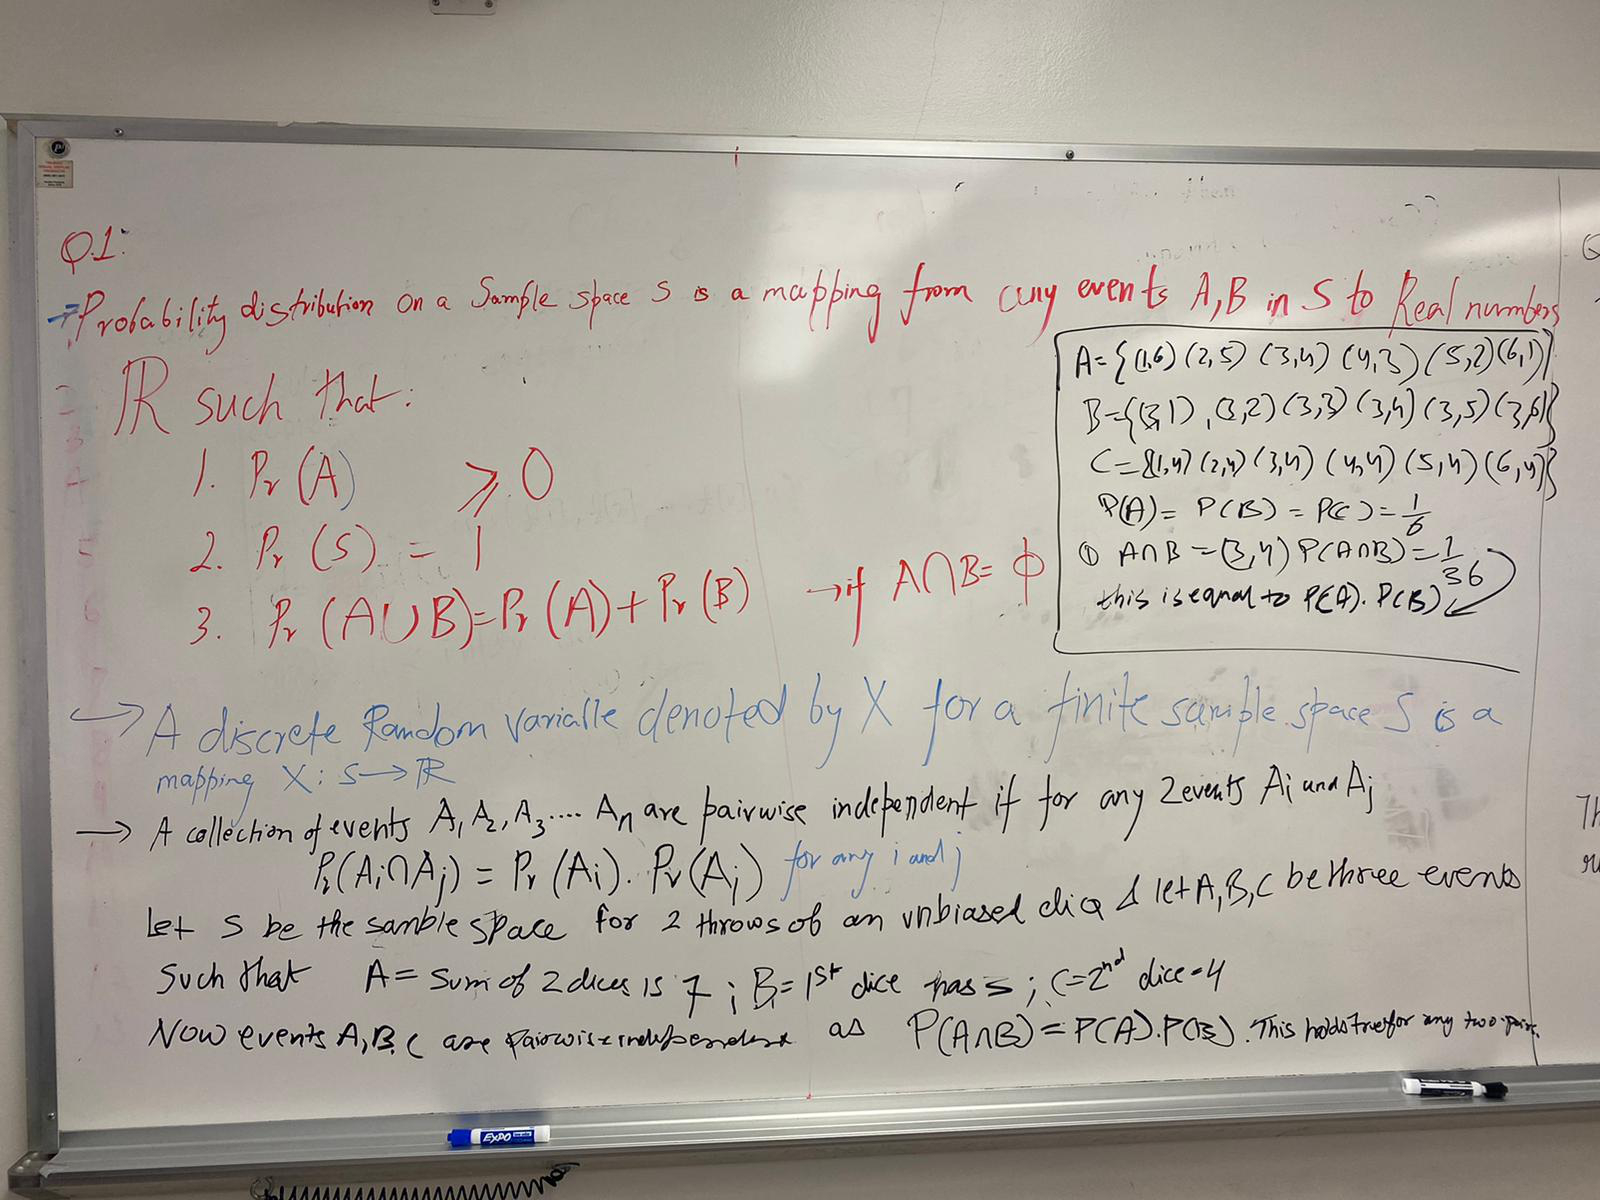 Q.1.
→ Probability distribution on a Sample space S is a mapping from any events A, B in S to Real numbers
ℝ such that:
1. Pr (A) ⩾ 0
2. Pr (S) = 1
3. Pr (A∪B) = Pr (A) + Pr (B) → if A∩B = ϕ
A = {(1,6) (2,5) (3,4) (4,3) (5,2) (6,1)}
B = {(3,1), (3,2) (3,3) (3,4) (3,5) (3,6)}
C = {(1,4) (2,4) (3,4) (4,4) (5,4) (6,4)}
P(A) = P(B) = P(C) = 1/6
① A∩B = (3,4) P(A∩B) = 1/36
this is equal to P(A). P(B)
→ A discrete Random variable denoted by X for a finite sample space S is a
mapping X : S → ℝ
→ A collection of events A1 A2, A3 .... An are pairwise independent if for any 2 events Ai and Aj
Pr(Ai∩Aj) = Pr (Ai). Pr (Aj) for any i and j
Let S be the sample space for 2 throws of an unbiased dice & let A, B, C be three events
Such that A = sum of 2 dices is 7 ; B = 1st dice has 3 ; C = 2nd dice = 4
Now events A, B, C are pairwise independent as P(A∩B) = P(A).P(B). This holds true for any two pairs.
EXPO